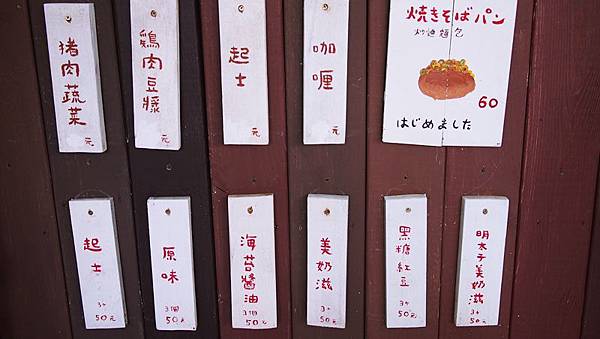 猪肉蔬菜
元
鷄肉豆漿
元
起士
元
咖喱
元
焼きそばパン
炒迪麵包
60
はじめました
起士
3ヶ
50
原味
3個
50
海苔醬油
3ヶ
50
美奶滋
3ヶ
50
黑糖紅豆
3ヶ
50
明太子美奶滋
3ヶ
50